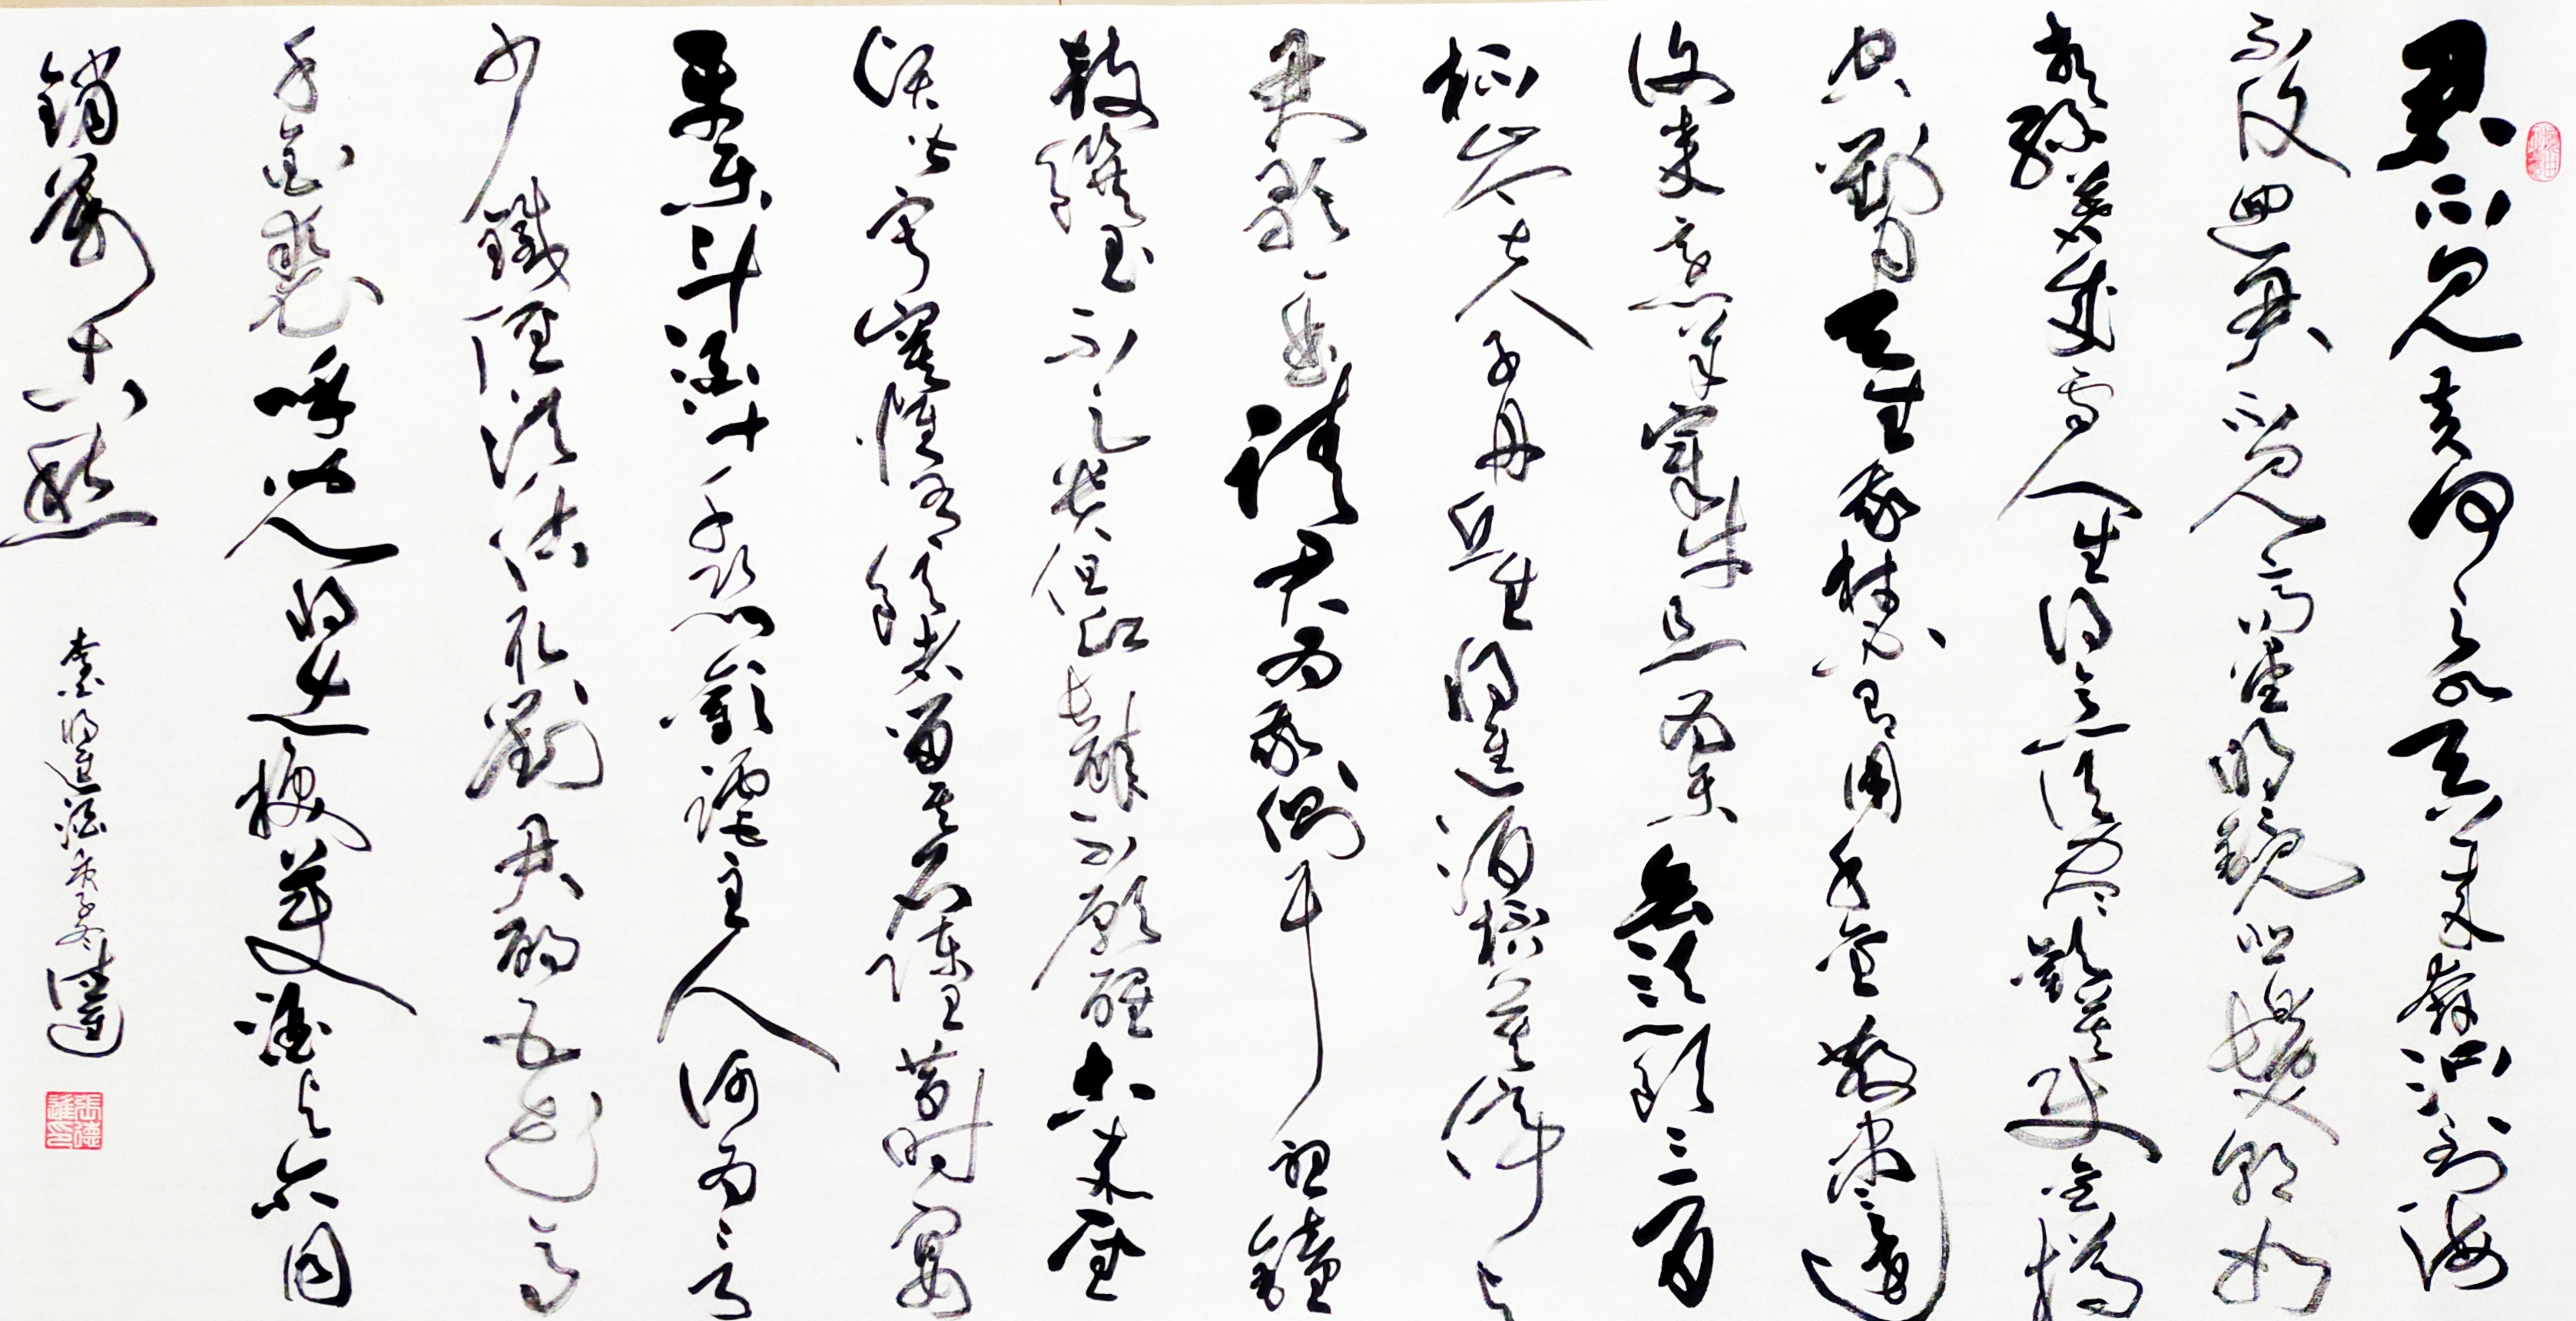 君不見黃河之水天上來奔流到海
不復迴君不見高堂明鏡悲白髮朝如
青絲暮成雪人生得意須盡歡莫使金樽
空對月天生我材必有用千金散盡還
復來烹羊宰牛且為樂會須一飲三百
杯岑夫子丹丘生將進酒杯莫停與
君歌一曲請君為我側耳聽鐘
鼓饌玉不足貴但願長醉不願醒古來聖
賢皆寂寞惟有飲者留其名陳王昔時宴
平樂斗酒十千恣歡謔主人何為言
少錢徑須沽取對君酌五花馬
千金裘呼兒將出換美酒與爾同
銷萬古愁
李白將進酒 季冬 德進
張德進印